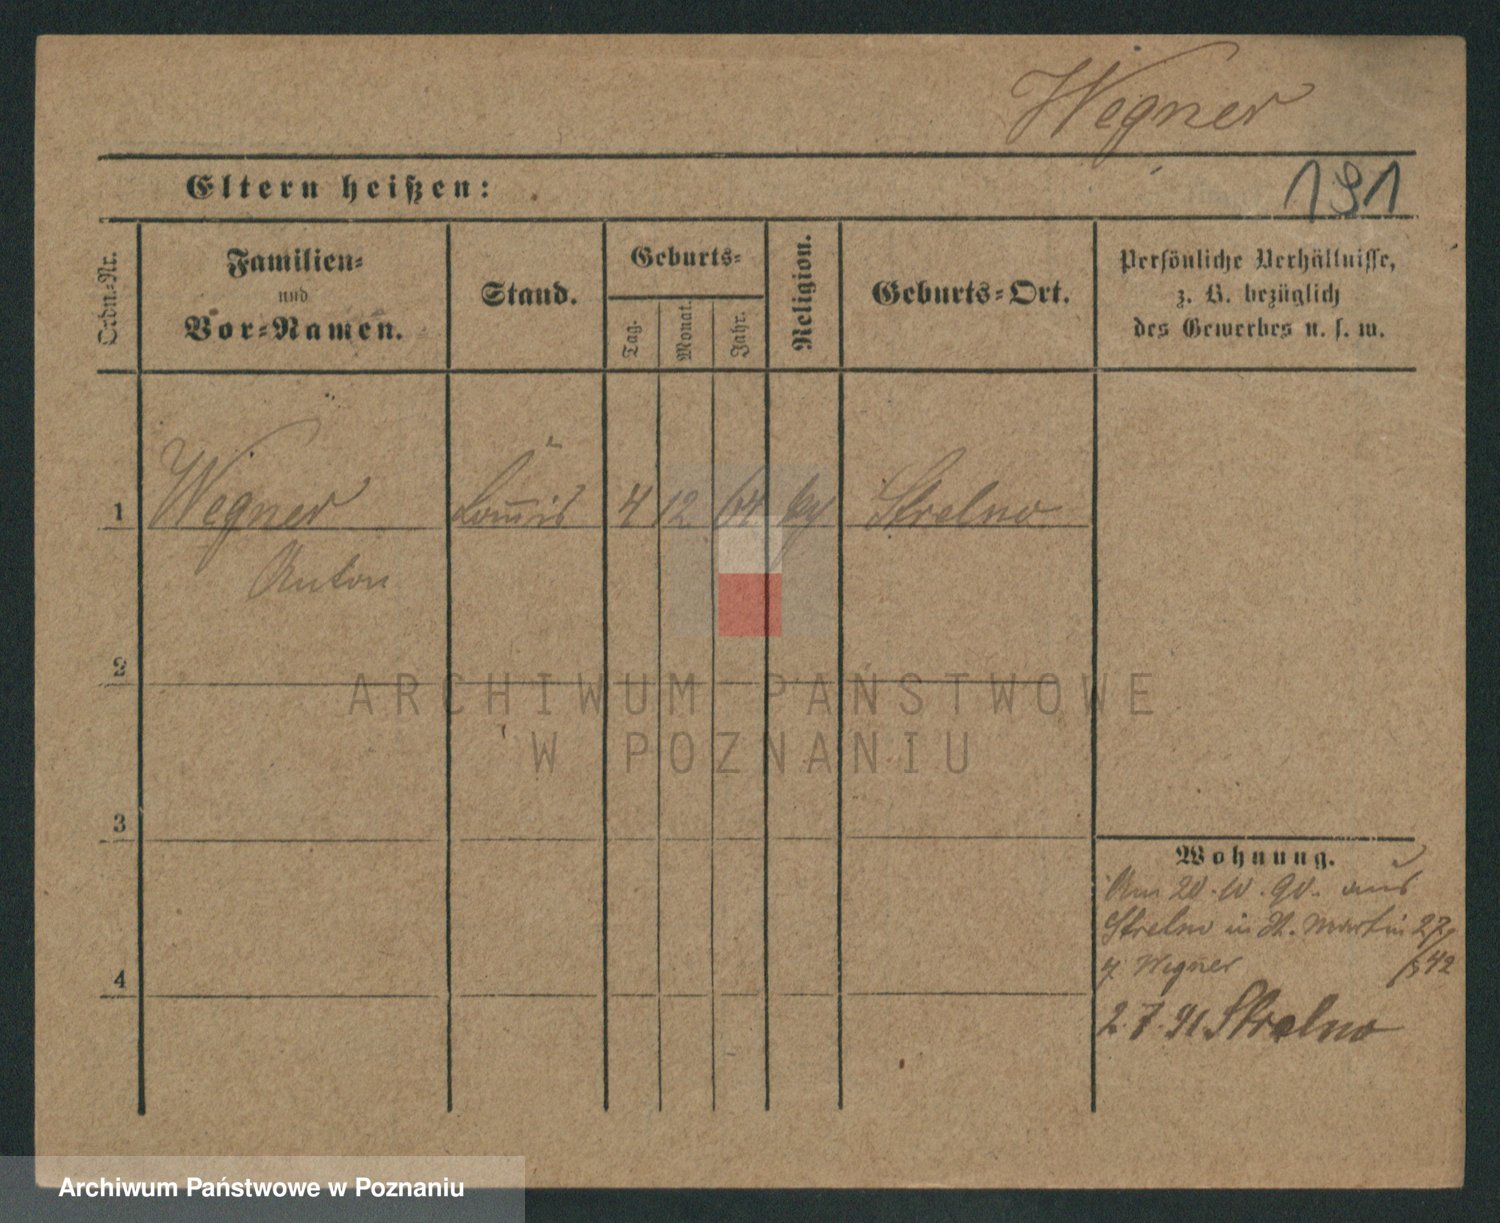 Wegner
Eltern heißen:
191
Ordn.-Nr.
Familien-
und
Vor-Namen.
Stand.
Geburts-
Tag.
Monat.
Jahr.
Religion.
Geburts-Ort.
Persönliche Verhältnisse,
z. B. bezüglich
des Gewerbes u. s. w.
1
Wegner
Anton
4
12
64
Strelno
2
ARCHIWUM PAŃSTWOWE
W POZNANIU
3
Wohnung.
Am 20.10.90. aus
Strelno in St. Martin 27
Wegner
4
2.7.91. Strelno
Archiwum Państwowe w Poznaniu